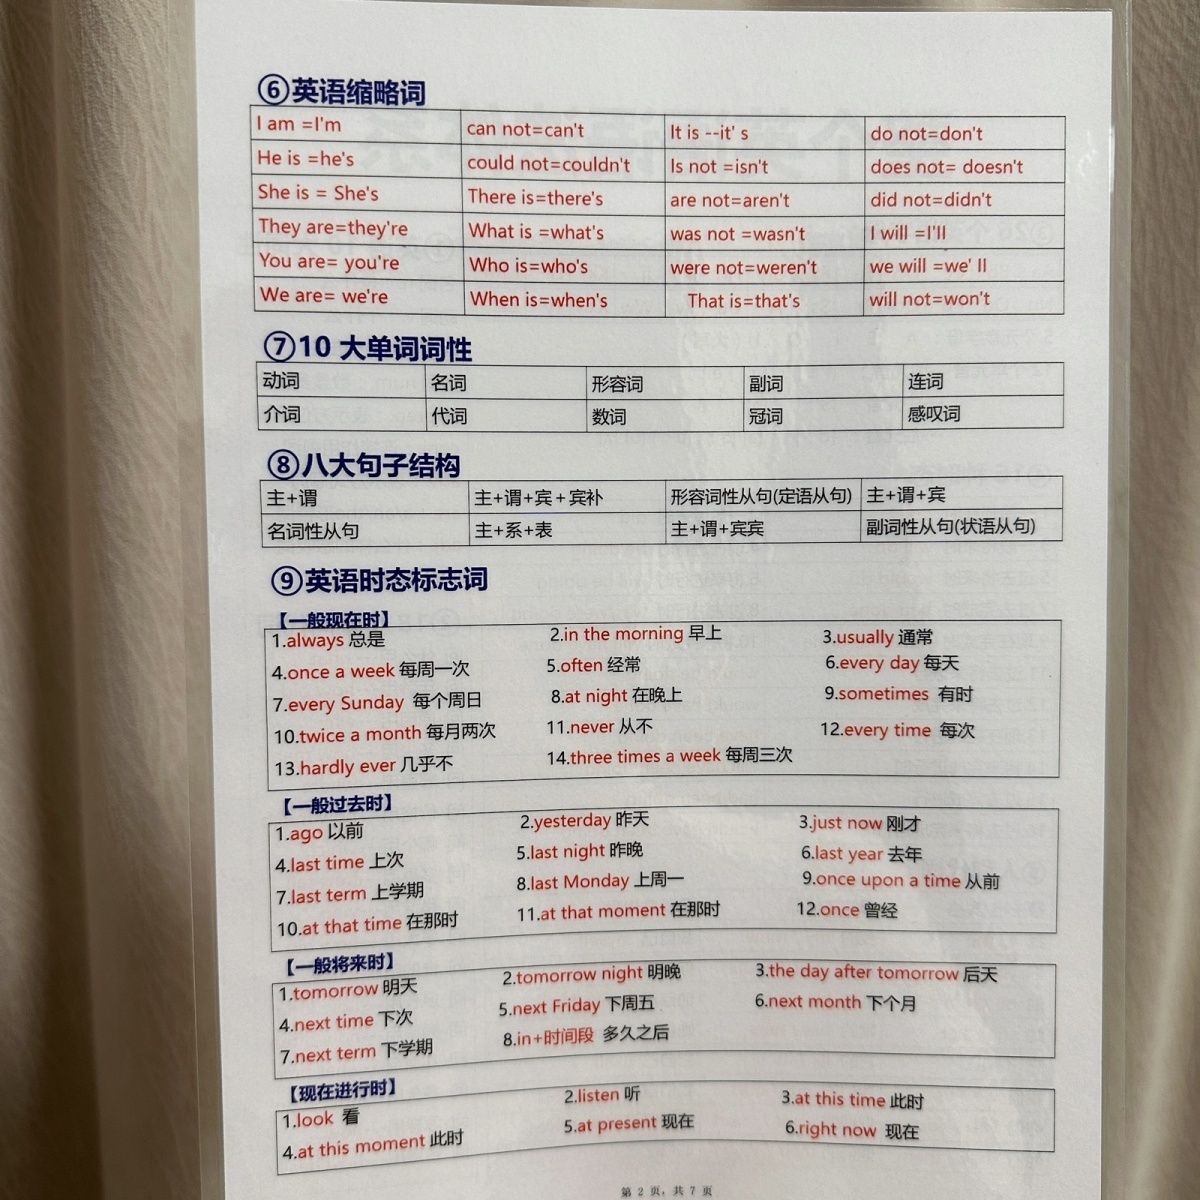 ⑥英语缩略词
I am =I'm can not=can't It is --it' s do not=don't
He is =he's could not=couldn't Is not =isn't does not= doesn't
She is = She's There is=there's are not=aren't did not=didn't
They are=they're What is =what's was not =wasn't I will =I'll
You are= you're Who is=who's were not=weren't we will =we' ll
We are= we're When is=when's That is=that's will not=won't
⑦10 大单词词性
动词 名词 形容词 副词 连词
介词 代词 数词 冠词 感叹词
⑧八大句子结构
主+谓 主+谓+宾+宾补 形容词性从句(定语从句) 主+谓+宾
名词性从句 主+系+表 主+谓+宾宾 副词性从句(状语从句)
⑨英语时态标志词
【一般现在时】
1.always 总是 2.in the morning 早上 3.usually 通常
4.once a week 每周一次 5.often 经常 6.every day 每天
7.every Sunday 每个周日 8.at night 在晚上 9.sometimes 有时
10.twice a month 每月两次 11.never 从不 12.every time 每次
13.hardly ever 几乎不 14.three times a week 每周三次
【一般过去时】
1.ago 以前 2.yesterday 昨天 3.just now 刚才
4.last time 上次 5.last night 昨晚 6.last year 去年
7.last term 上学期 8.last Monday 上周一 9.once upon a time 从前
10.at that time 在那时 11.at that moment 在那时 12.once 曾经
【一般将来时】
1.tomorrow 明天 2.tomorrow night 明晚 3.the day after tomorrow 后天
4.next time 下次 5.next Friday 下周五 6.next month 下个月
7.next term 下学期 8.in+时间段 多久之后
【现在进行时】
1.look 看 2.listen 听 3.at this time 此时
4.at this moment 此时 5.at present 现在 6.right now 现在
第 2 页，共 7 页